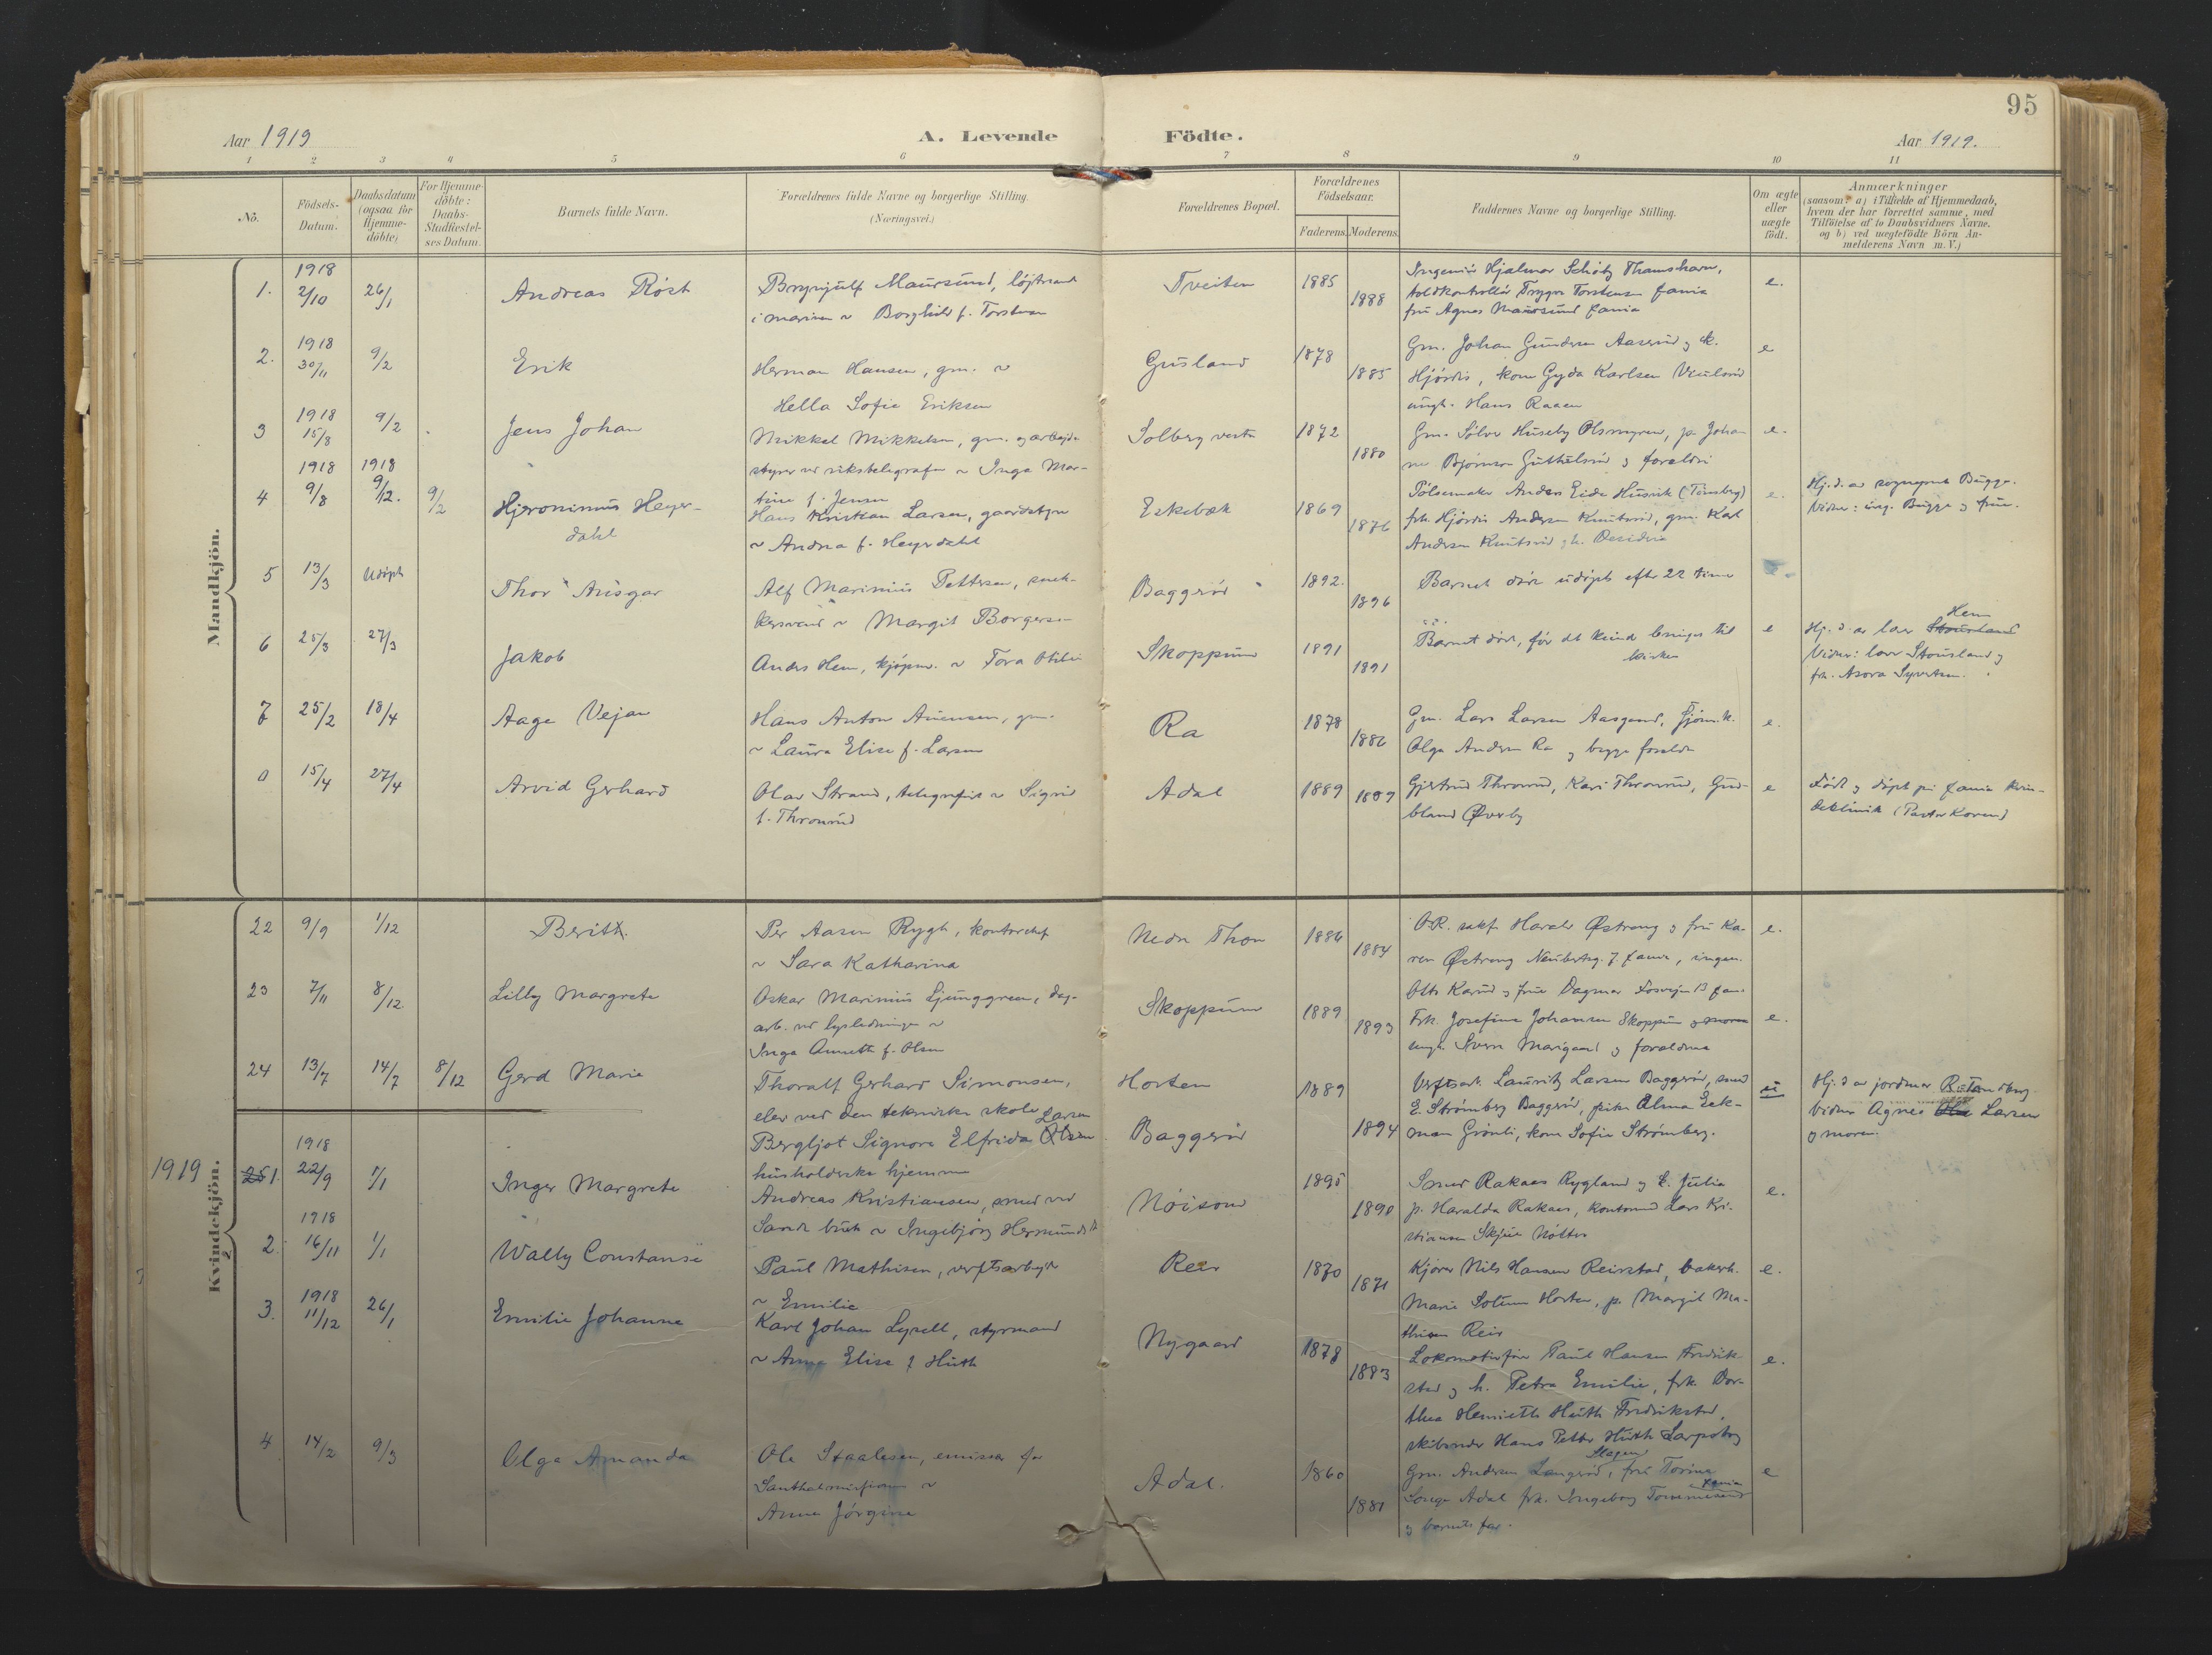 95
Aar 1919
A. Levende Födte.
Aar 1919.
1 2 3 4 5 6 7 8 9 10 11
No.
Födsels-Datum.
Daabsdatum (ogsaa for Hjemme-döbte)
For Hjemme-döbte: Daabs-Stadfæstel-ses Datum.
Barnets fulde Navn.
Forældrenes fulde Navne og borgerlige Stilling.
(Næringsvei.)
Forældrenes Bopæl.
Forældrenes Födselsaar.
Faderens. Moderens.
Faddernes Navne og borgerlige Stilling.
Om ægte eller uægte födt.
Anmærkninger
(saasom: a) i Tilfælde af Hjemmedaab,
hvem der har forrettet samme, med
Tilföielse af to Daabsvidners Navne.
og b) ved uægtefödte Börn An-
melderens Navn m.V.)
Mandkjön.
1. 1918 2/10 26/1 Andreas Röst
Brynjulf Maursund, löjtnant
i marinen ~ Borghild f. Torstensen
Tveiten 1885 1888
Ingeniör Hjalmar Schiötz Thamshavn,
toldkontrollör Trygve Torstensen
fru Agnes Maursund
e.
2. 1918 30/11 9/2 Erik
Herman Hansen, gm. ~
Hella Sofie Eriksen
Gusland 1878 1885
Gm. Johan Gundersen Aaserud og k.
Hjördis, kone Gyda Karlsen
ungk. Hans Raaen
e
3 1918 15/8 9/2 Jens Johan
Mikkel Mikkelsen, gm. og arbejds-
styrer ved rikstelegrafen ~ Inga Mar-
tine f. Jensen
Solberg vestre 1872 1880
Gm. Sölve Huseby Olsmyren, p. Johan
ne Björnson Guthulsrud og forældre
e.
4 1918 9/8 1918 9/12. 9/2 Hjeronimus Heyer-
dahl
Hans Kristian Larsen, gaardstyrer
~ Andrea f. Heyerdahl
Eskebæk 1869 1876
Pölsemaker Anders Eide Husvik (Tönsberg)
frk. Hjördis Andersen Knutsrud, gm. Karl
Andersen Knutsrud og h. Desideria
e.
Hj. d. av sogneprest Bugge.
Vidner: ing. Bugge og frue.
5 13/3 Udöpt Thor Ansgar
Alf Marinius Pettersen, snek-
kersvend ~ Margit Borgersen
Baggeröd 1892. 1896
Barnet döde udöpt efter 22 timer
6 25/3 27/3 Jakob
Anders Hem, kjöpm. ~ Tora Otilie
Skoppum 1891 1891
Barnet döde, för det kunde bringes til
kirken
e
Hem
Hj. d. av lærer Stousland
Vidner: lærer Stousland og
frk. Asora Syvertsen.
7 25/2 18/4 Aage Vejar
Hans Anton Auensen, gm.
~ Laura Elise f. Larsen
Ra 1878 1886
Gm. Lars Larsen Aasgaard, Fjörn. k.
Olga Andersen Ra og begge forældre
e.
0 15/4 27/4 Arvid Gerhard
Olav Strand, telegrafist ~ Sigrid
f. Thronrud
Adal 1889 1889
Gjertrud Thronrud, Kari Thronrud, Gud-
bland Överby
e
Födt og döpt på kvin-
deklinik (Pastor Koren)
Kvindekjön.
22 9/9 1/12 Berith
Per Aasen Rygh, kontorchef
~ Sara Katharina
Nedre Thon 1886 1884
O.R. sakf. Harald Östreng og fru Ka-
ren Östreng
e.
23 7/11 8/12 Lilly Margrete
Oskar Marinius Ljunggren, dag-
arb. ved lysledningen ~
Inga Annette f. Olsen
Skoppum 1889 1893
Otto Karud og frue Dagmar
Frk. Josefine Johansen Skoppum
ungk. Sverre Marigaard og forældrene
e.
24 13/7 14/7 8/12 Gerd Marie
Thoralf Gerhard Simonsen,
elev ved den tekniske skole
Larsen
Bergljot Signora Elfrida Olsen
husholderske hjemme
Horten
Baggeröd
1889 1894
Verftsarb. Lauritz Larsen Baggeröd, smed
E. Strömberg Baggeröd, Alma Eck-
man Grönli, kone Sofie Strömberg.
u
Hj. d av jordmor R. Tandberg
Vidner Agnes Larsen
og moren.
1919
25 1. 1918 22/9 1/1 Inger Margrete
Andreas Kristiansen, smed ved
Sande bruk ~ Ingebjörg Hermundst
Nöisom 1895 1890
Smed Rakaas Rygland og E. Julie
p. Haralda Rakaas, kontorist Lars Kri-
stiansen Nöttero
e.
2. 1918 16/11 1/1 Wally Constanse
Paul Mathisen, verftsarbejder
~ Emilie
Reir 1870 1871
Kjörer Nils Hansen Reirstad, bakerh.
Marie Solum Horten, p. Margit Ma-
thisen Reir
e.
3. 1918 11/12 26/1 Emilie Johanne
Karl Johan Lysell, styrmand
~ Anna Elise f. Huth
Nygaard 1878 1883
Lokomotivförer Paul Hansen Fredrik-
stad og h. Petra Emilie, frk. Dor-
thea Henriette Huth Fredrikstad,
skibsreder Hans Petter Huth Sarpsborg
e.
4 14/2 9/3 Olga Amanda
Ole Staalesen, emissær for
Santhalmissionen ~
Anna Jörgine
Adal. 1860 1881
Slagen
Gm. Andersen Langeröd, fru Torine
Adal frk. Ingeborg Tommesen
og barnets far.
e